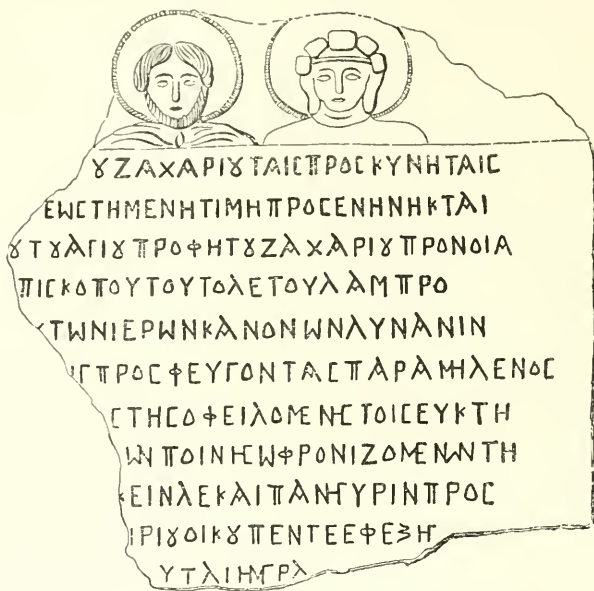 ȢΖΑΧΑΡΙȢΤΑΙϹΠΡΟϹΚΥΝΗΤΑΙϹ
ΕΩϹΤΗΜΕΝΗΤΙΜΗΠΡΟϹΕΝΗΝΗΚΤΑΙ
ȢΤȢΑΓΙȢΠΡΟΦΗΤȢΖΑΧΑΡΙȢΠΡΟΝΟΙΑ
ΠΙϹΚΟΠΟΥΤΟΥΤΟΛΕΤΟΥΛΑΜΠΡΟ
ΤΩΝΙΕΡΩΝΚΑΝΟΝΩΝΛΥΝΑΝΙΝ
ΙϹΠΡΟϹΦΕΥΓΟΝΤΑϹΠΑΡΑΜΗΛΕΝΟϹ
ϹΤΗϹΟΦΕΙΛΟΜΕΝΗϹΤΟΙϹΕΥΚΤΗ
ΩΝΠΟΙΝΗϹΩΦΡΟΝΙΖΟΜΕΝΩΝΤΗ
ΚΕΙΝΛΕΚΑΙΠΑΝΗΓΥΡΙΝΠΡΟϹ
ΙΡΙȢΟΙΚȢΠΕΝΤΕΕΦΕΞΗ
ΥΤΛΙΗΜΓΡΛ